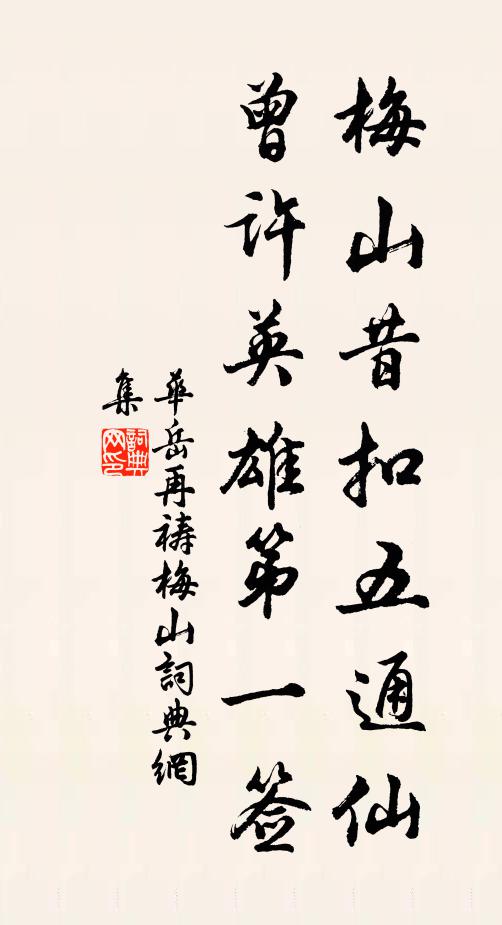 梅山昔扣五通仙
曾许英雄第一签
華岳再禱梅山詞典網
集
詞典網印